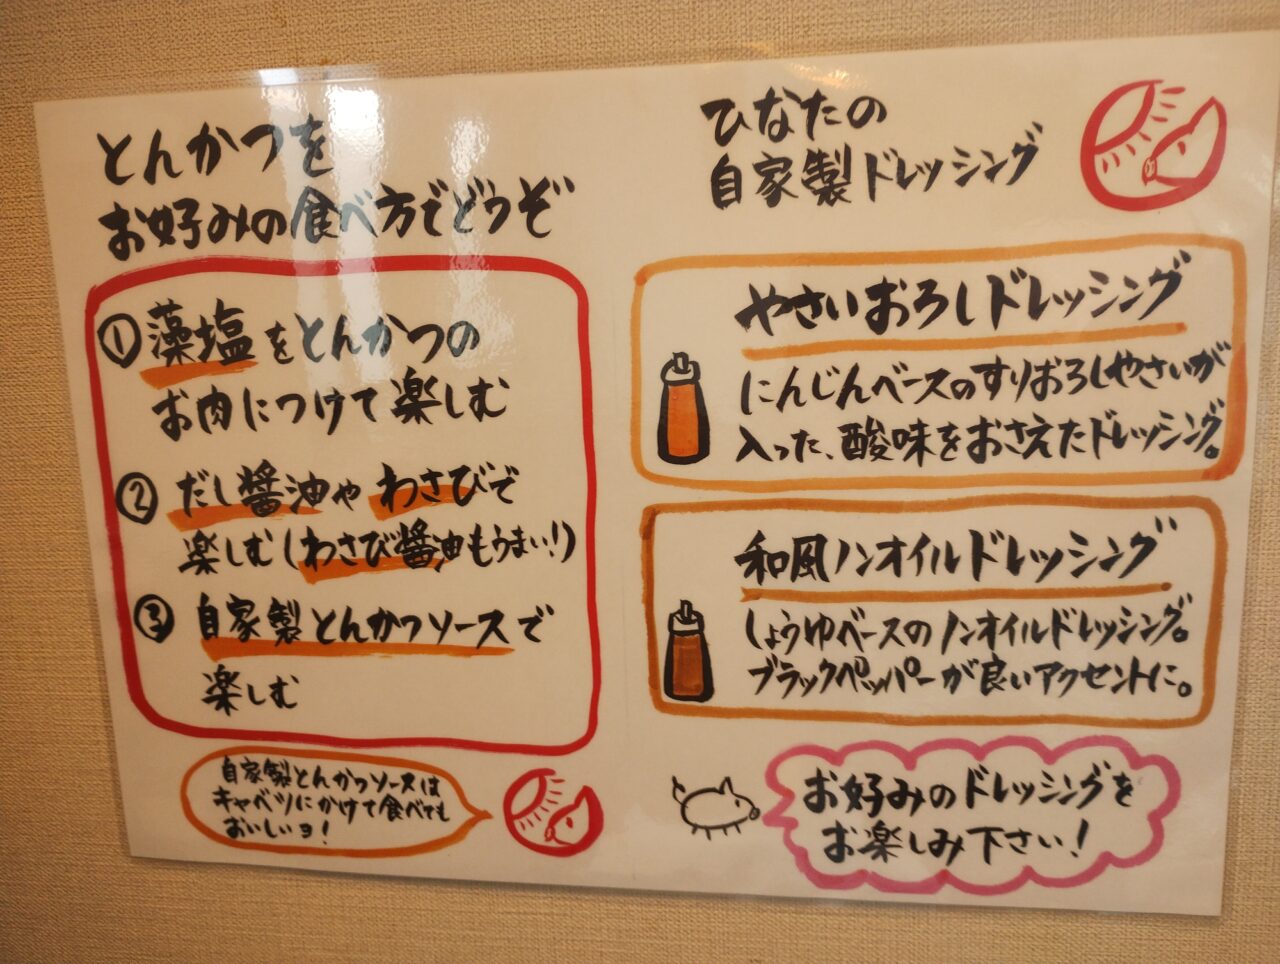 とんかつを
お好みの食べ方でどうぞ
① 藻塩をとんかつの
お肉につけて楽しむ
② だし醤油やわさびで
楽しむ(わさび醤油もうまい!)
③ 自家製とんかつソースで
楽しむ
自家製とんかつソースは
キャベツにかけて食べても
おいしいョ!
ひなたの
自家製ドレッシング
やさいおろしドレッシング
にんじんベースのすりおろしやさいが
入った、酸味をおさえたドレッシング。
和風ノンオイルドレッシング
しょうゆベースのノンオイルドレッシング。
ブラックペッパーが良いアクセントに。
お好みのドレッシングを
お楽しみ下さい!